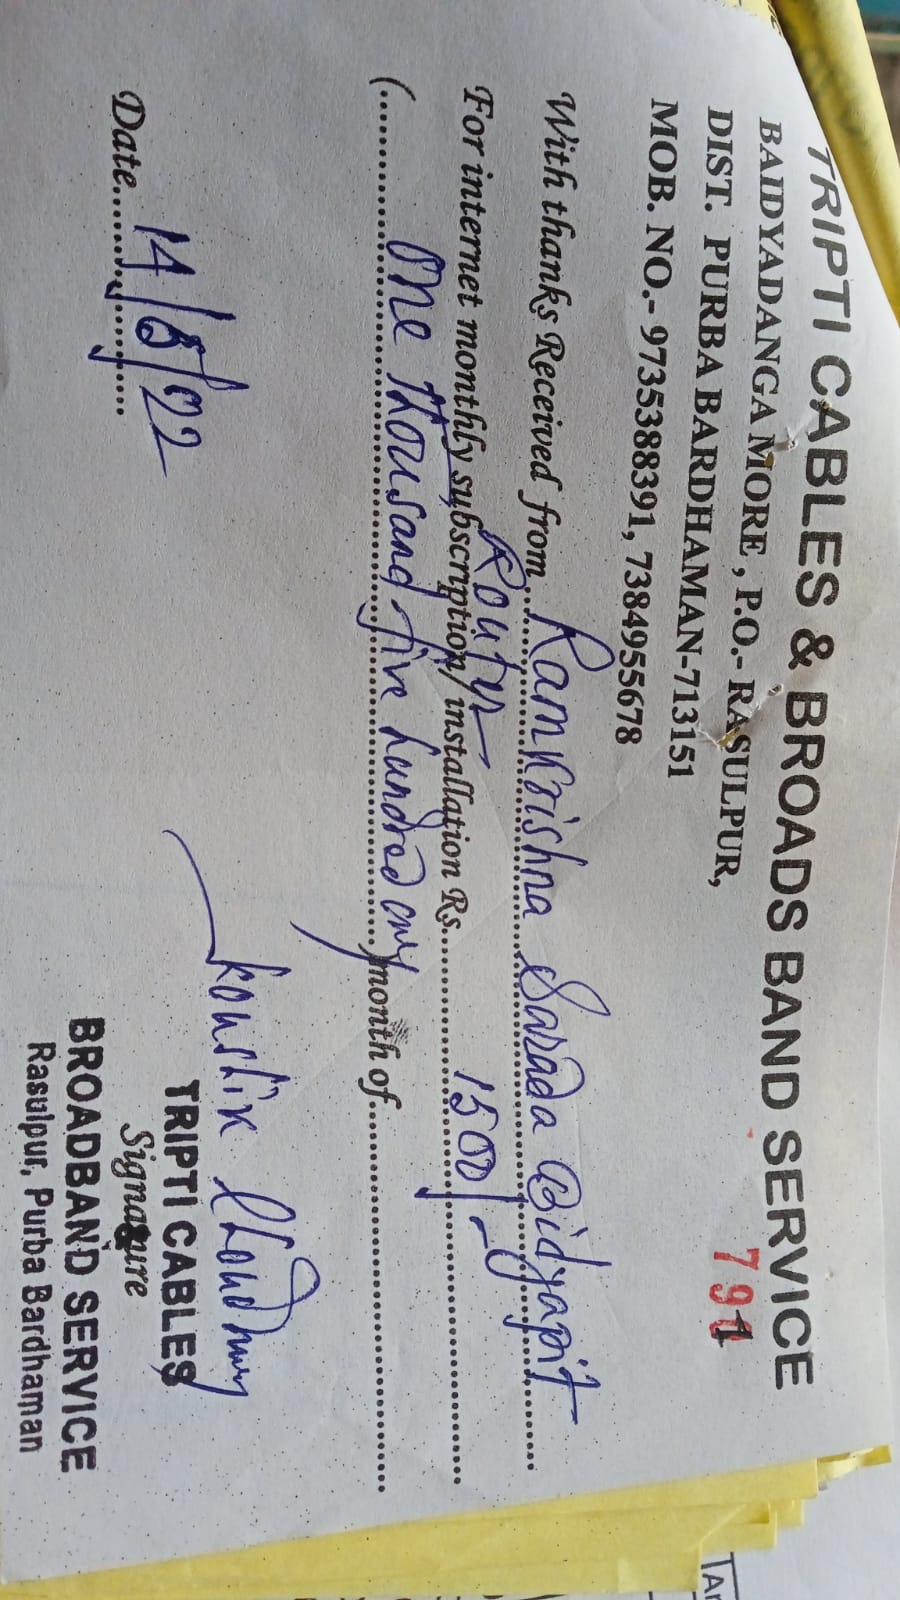 TRIPTI CABLES & BROADS BAND SERVICE
BAIDYADANGA MORE , P.O.- RASULPUR,
DIST. PURBA BARDHAMAN-713151
MOB. NO.- 9735388391, 7384955678
791
With thanks Received from Ramkrishna Sarada Bidyapit
For internet monthly subscription/ installation Rs. 1500/-
(One Thousand five hundred only) month of
Date 14/5/22
Koushik Choudhury
TRIPTI CABLES
Signature
BROADBAND SERVICE
Rasulpur, Purba Bardhaman